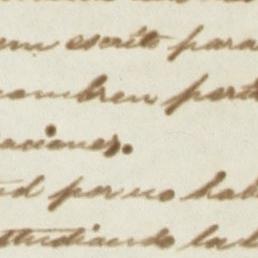 em escrito para
nombren parti
aciones.
ud por no hab
studiando la l